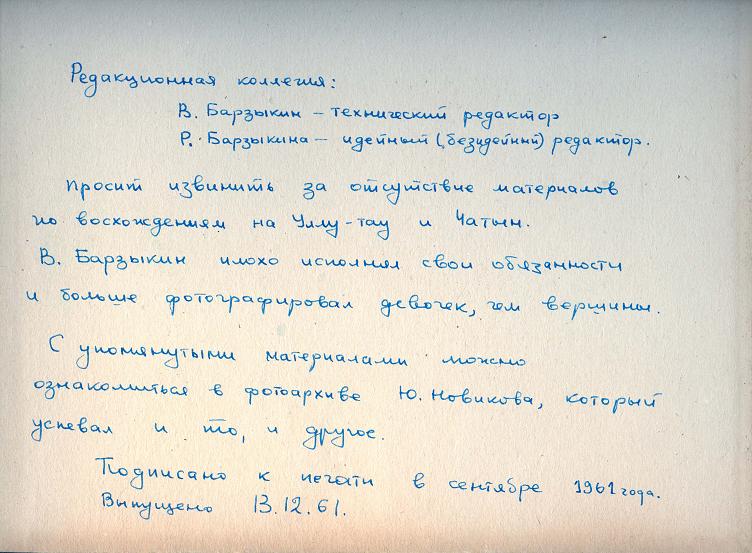 Редакционная коллегия:
В. Барзыкин – технический редактор
Р. Барзыкина – идейный (безидейный) редактор.
просит извинить за отсутствие материалов
по восхождениям на Уллу-тау и Чатын.
В. Барзыкин плохо исполнял свои обязанности
и больше фотографировал девочек, чем вершины.
С упомянутыми материалами можно
ознакомиться в фотоархиве Ю. Новикова, который
успевал и то, и другое.
Подписано к печати в сентябре 1961 года.
Выпущено 13.12.61.